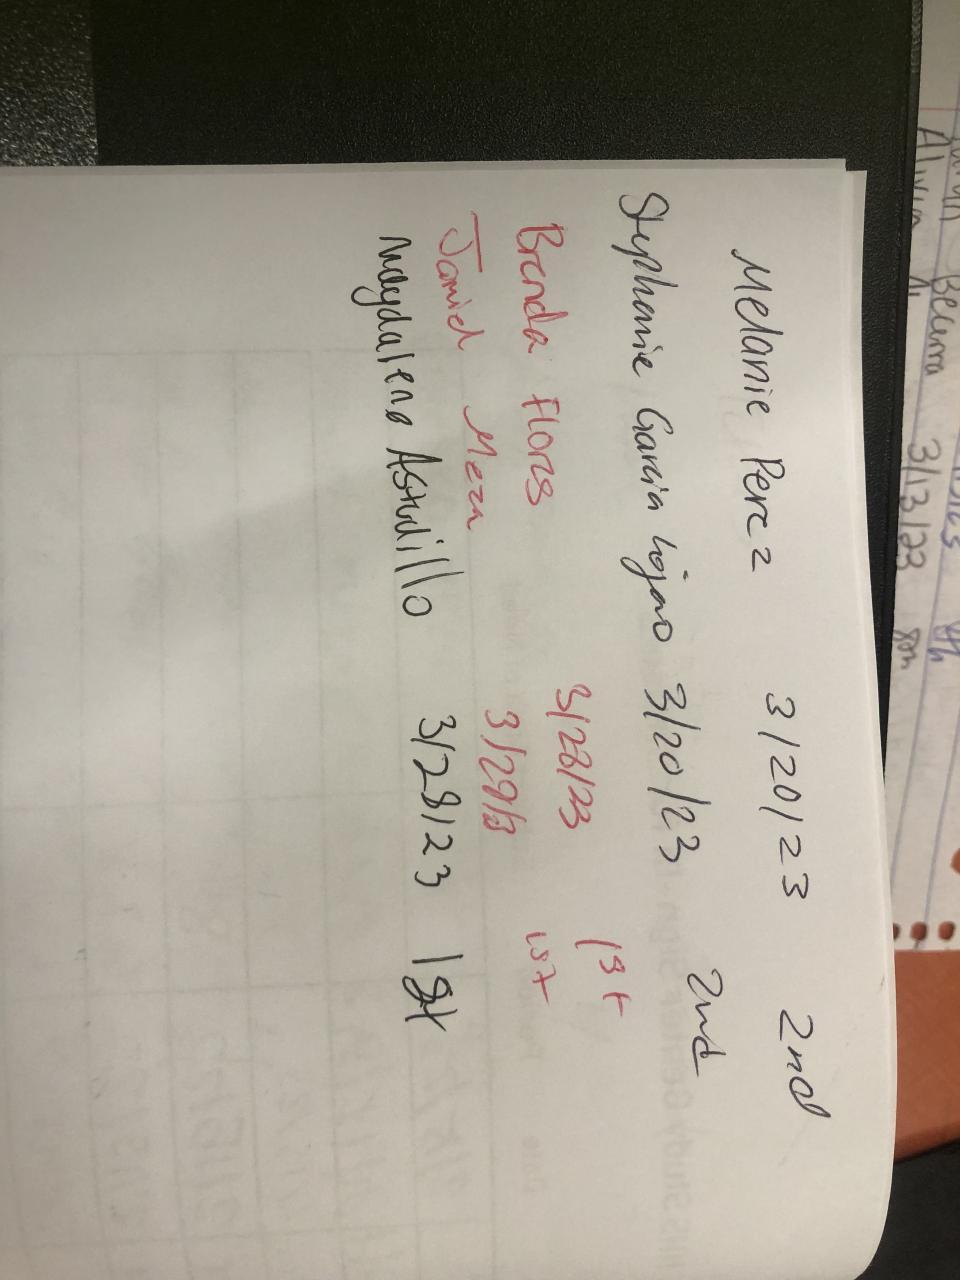 Melanie Perez 3/20/23 2nd
Stephanie Garcia 3/20/23 2nd
Brenda Flores 3/28/23 1st
Jamid Meza 3/29/23 1st
Magdalena Astudillo 3/28/23 1st
Becerra
Alvin A 3/13/23 8th